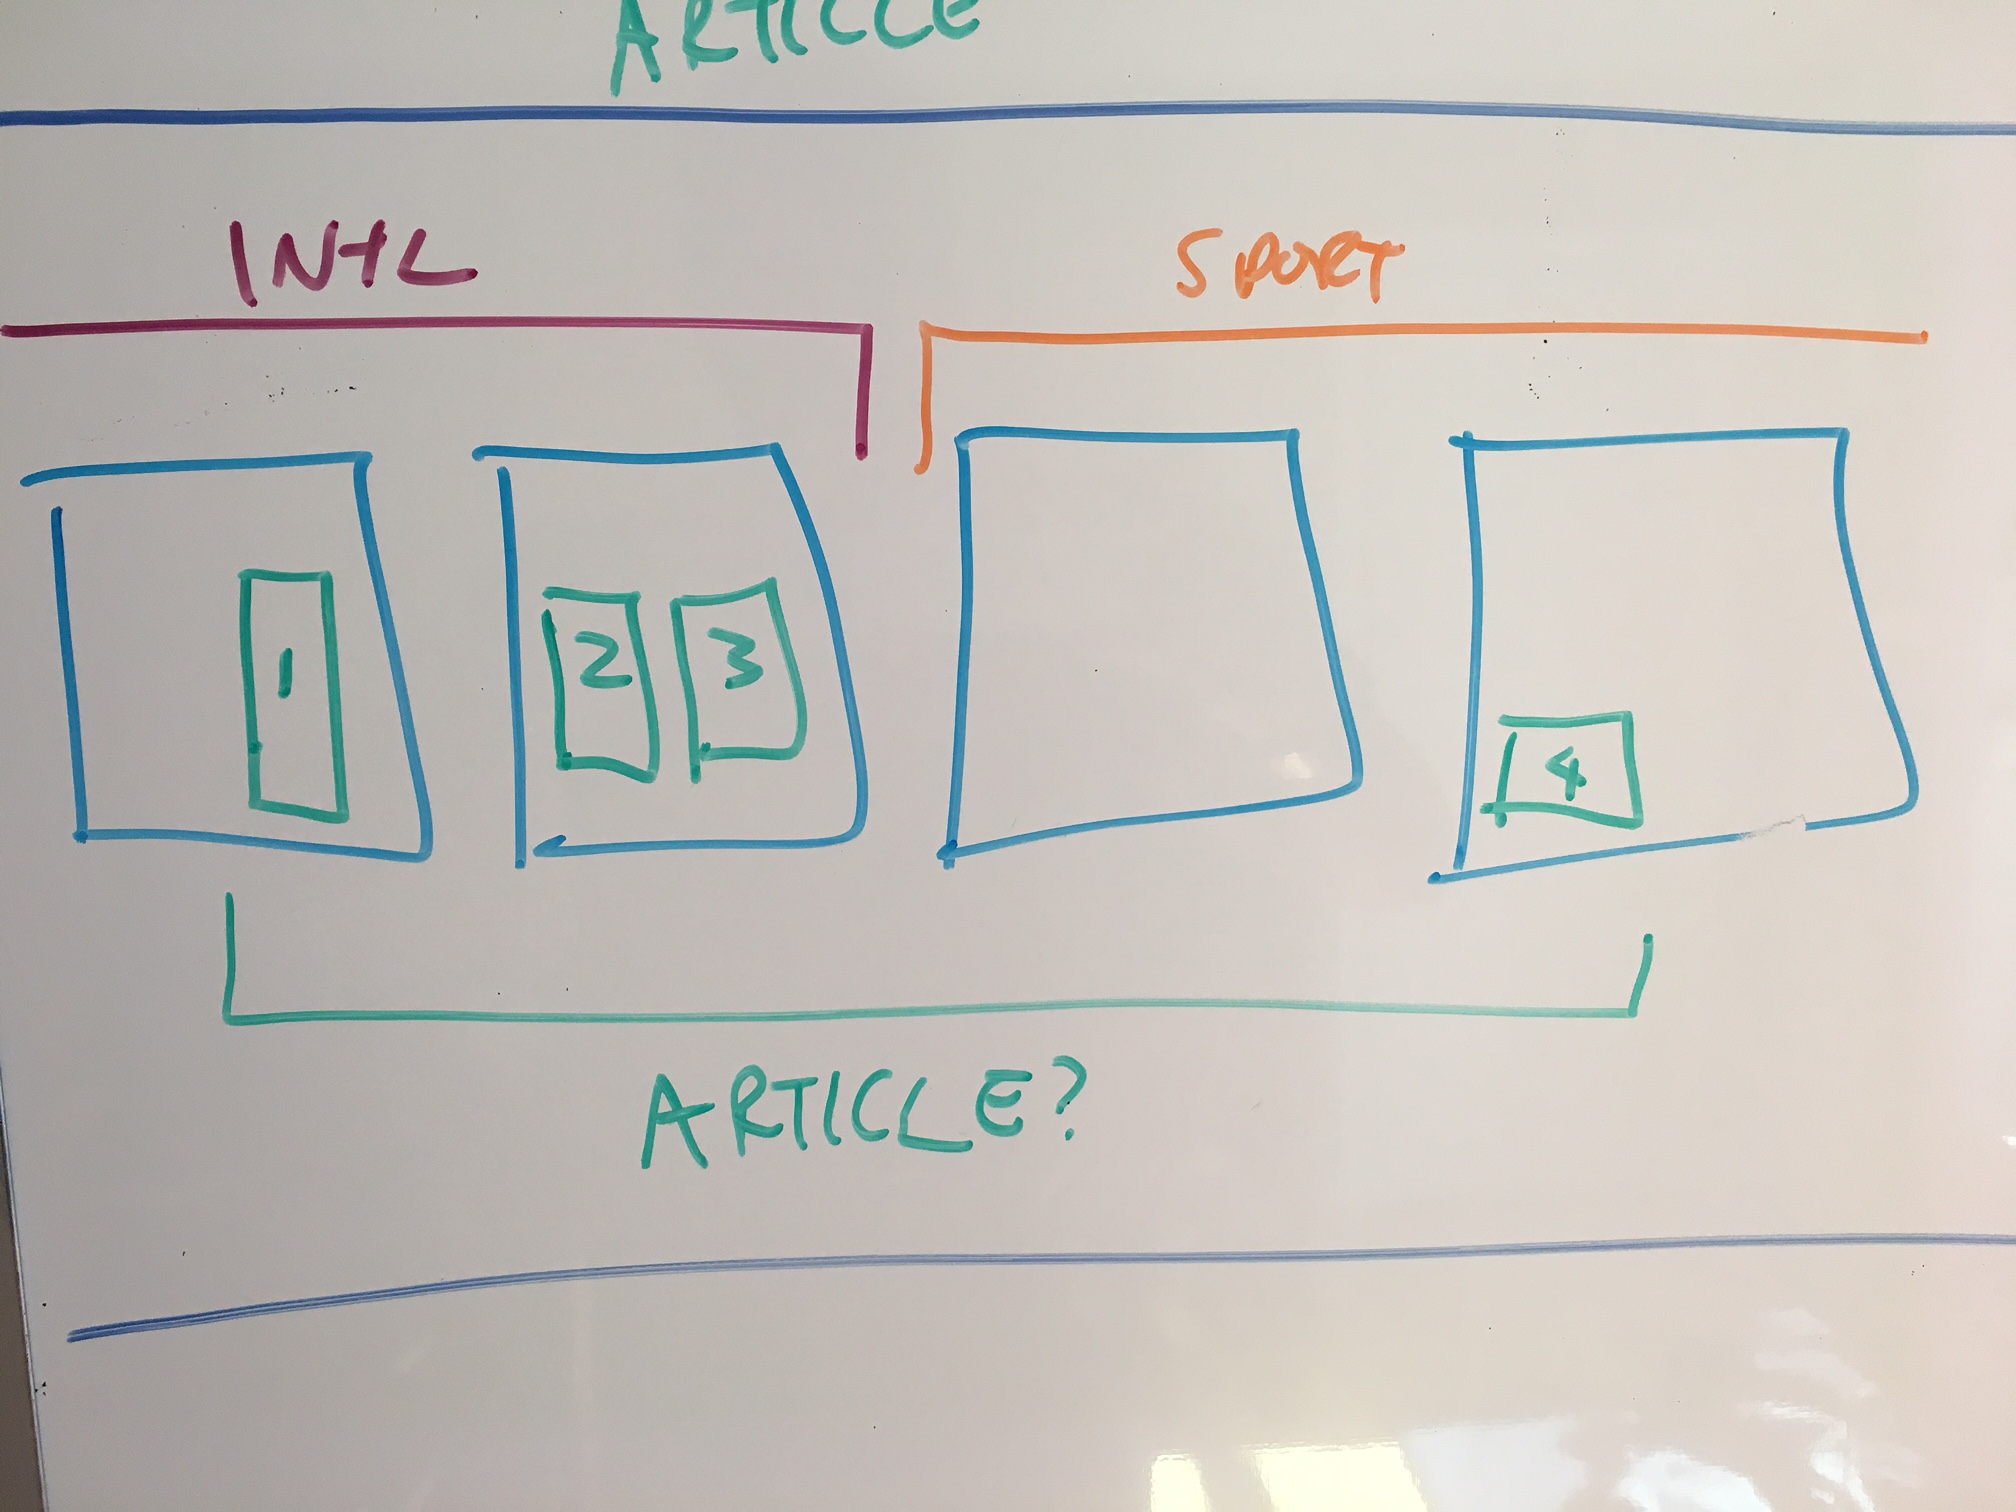 ARTICLE
INTL
SPORT
1
2
3
4
ARTICLE?